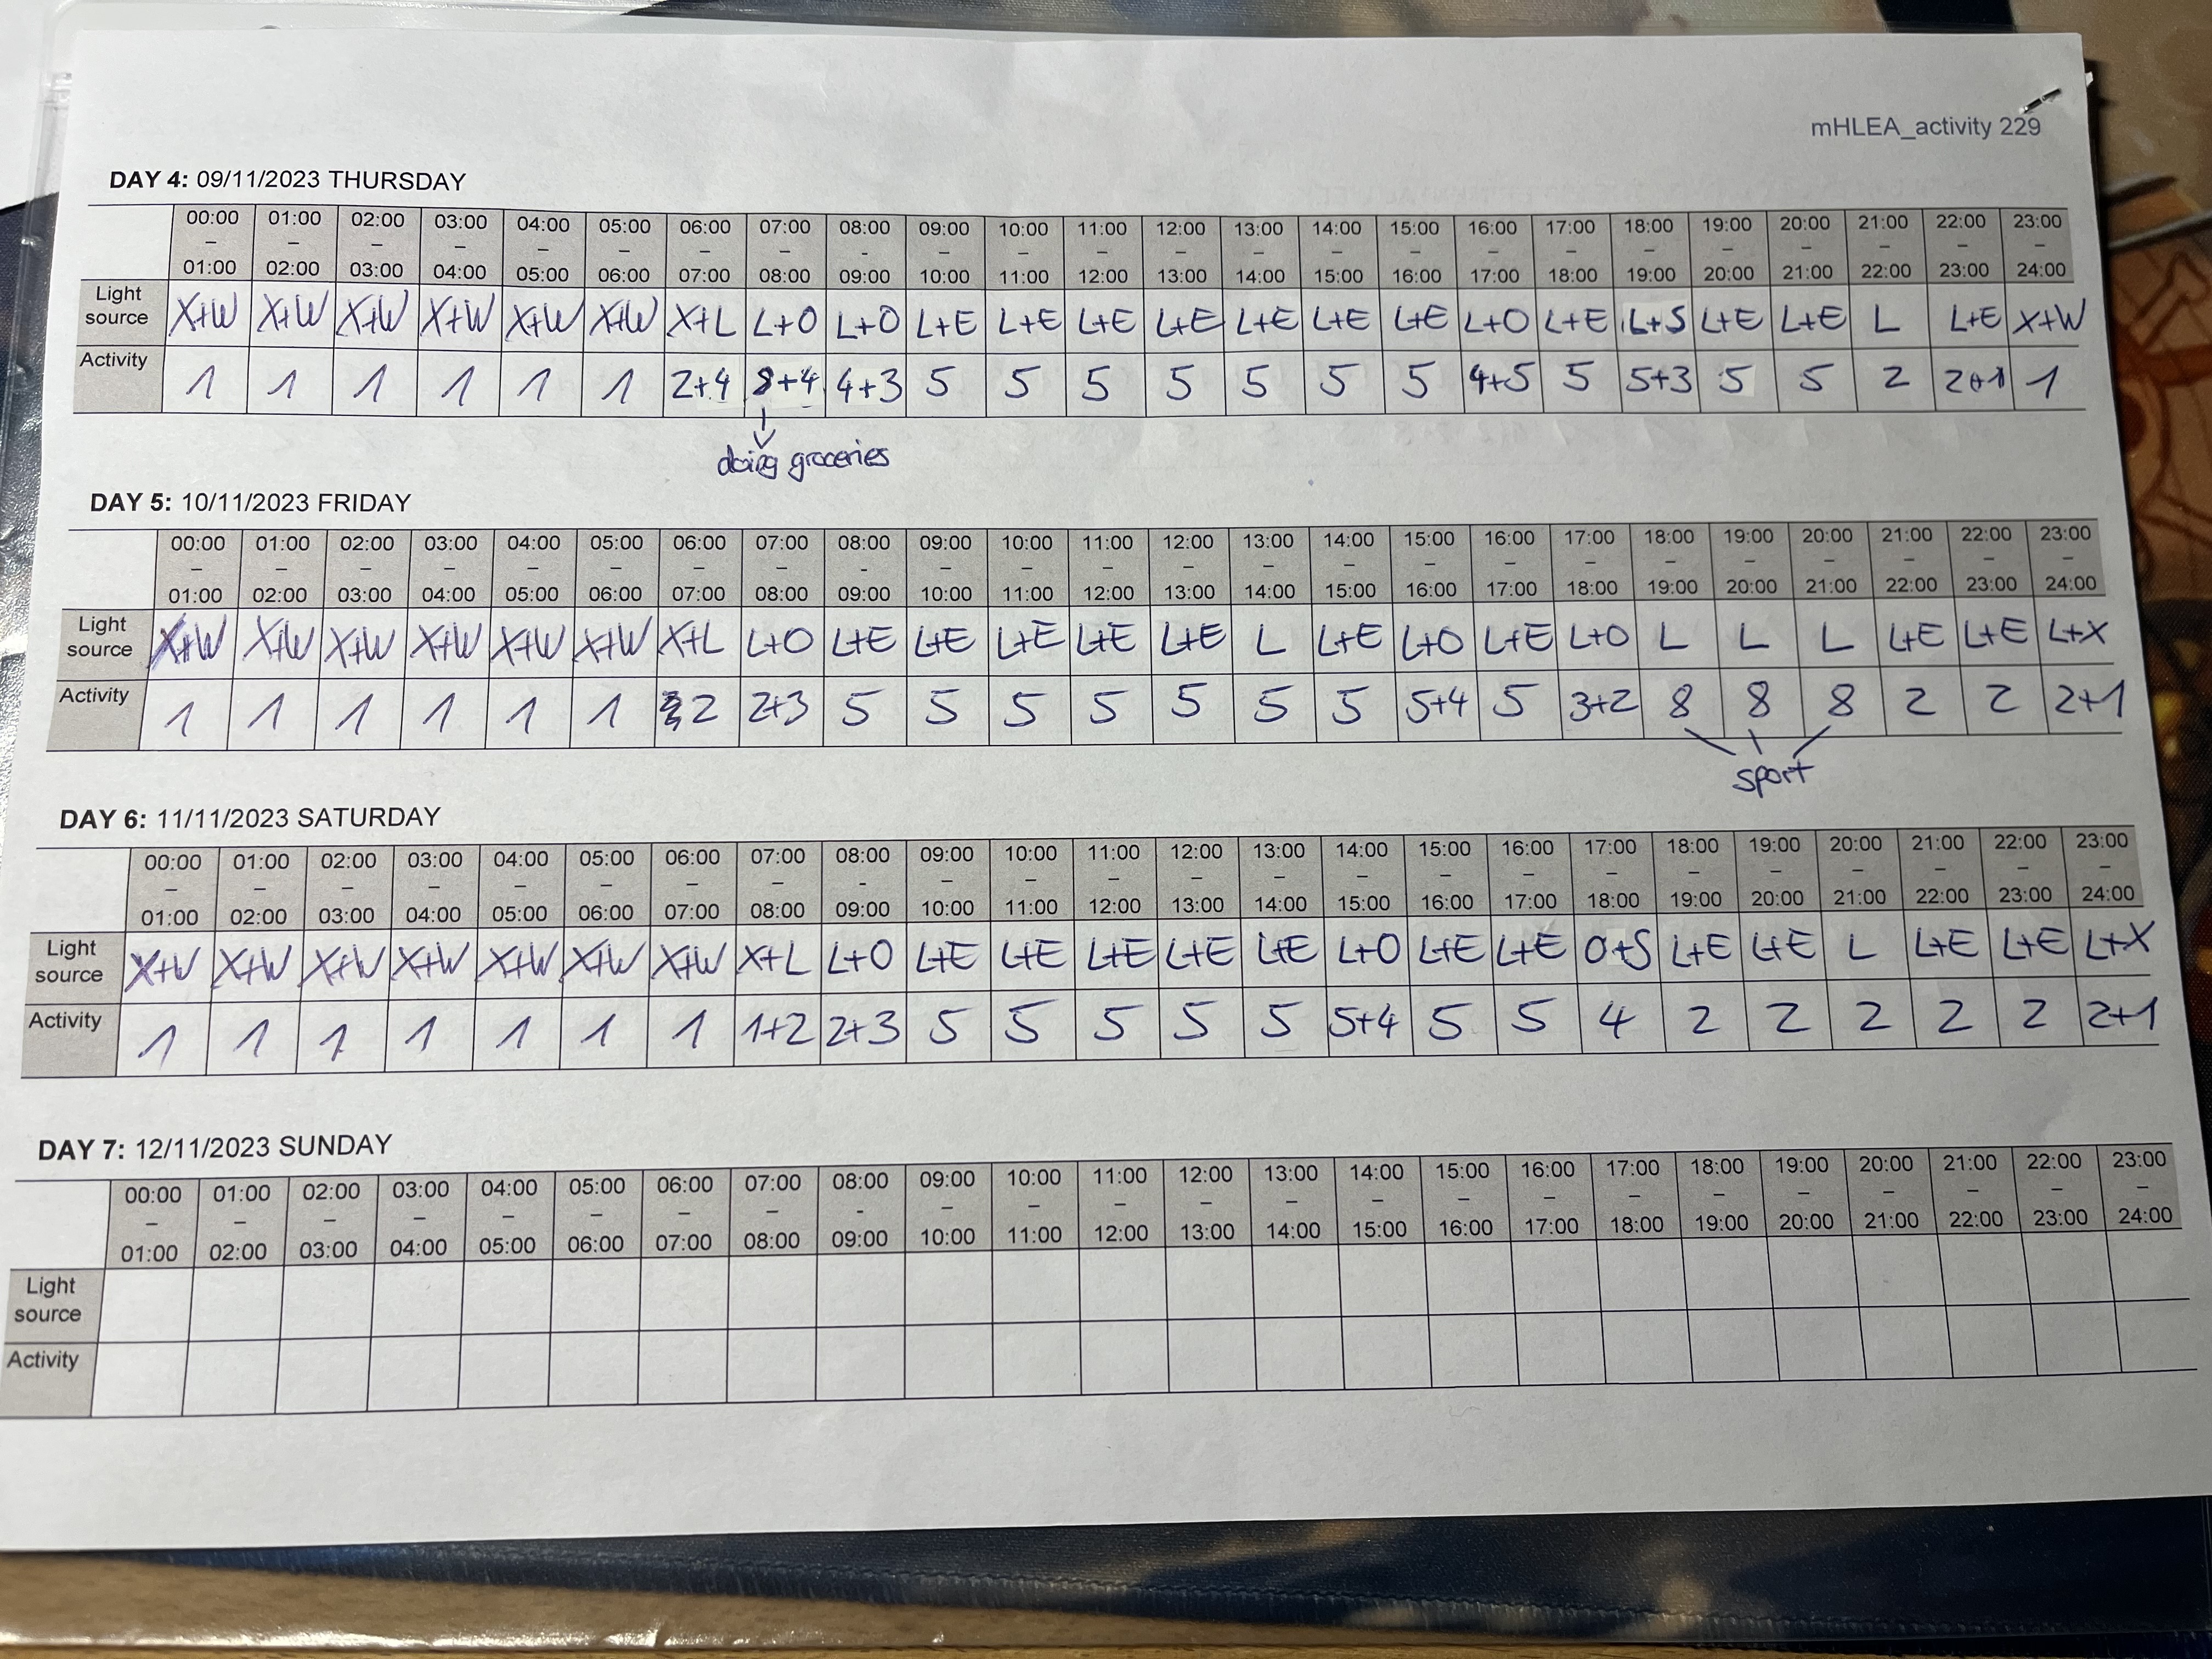 mHLEA_activity 229
DAY 4: 09/11/2023 THURSDAY
00:00 – 01:00 01:00 – 02:00 02:00 – 03:00 03:00 – 04:00 04:00 – 05:00 05:00 – 06:00 06:00 – 07:00 07:00 – 08:00 08:00 - 09:00 09:00 – 10:00 10:00 – 11:00 11:00 – 12:00 12:00 – 13:00 13:00 – 14:00 14:00 – 15:00 15:00 – 16:00 16:00 – 17:00 17:00 – 18:00 18:00 – 19:00 19:00 – 20:00 20:00 – 21:00 21:00 – 22:00 22:00 – 23:00 23:00 – 24:00
Light source X+W X+W X+W X+W X+W X+W X+L L+O L+O L+E L+E L+E L+E L+E L+E L+E L+O L+E L+S L+E L+E L L+E X+W
Activity 1 1 1 1 1 1 2+4 8+4 4+3 5 5 5 5 5 5 5 4+5 5 5+3 5 5 2 2+1 1
doing groceries
DAY 5: 10/11/2023 FRIDAY
00:00 – 01:00 01:00 – 02:00 02:00 – 03:00 03:00 – 04:00 04:00 – 05:00 05:00 – 06:00 06:00 – 07:00 07:00 – 08:00 08:00 - 09:00 09:00 – 10:00 10:00 – 11:00 11:00 – 12:00 12:00 – 13:00 13:00 – 14:00 14:00 – 15:00 15:00 – 16:00 16:00 – 17:00 17:00 – 18:00 18:00 – 19:00 19:00 – 20:00 20:00 – 21:00 21:00 – 22:00 22:00 – 23:00 23:00 – 24:00
Light source X+W X+W X+W X+W X+W X+W X+L L+O L+E L+E L+E L+E L+E L L+E L+O L+E L+O L L L L+E L+E L+X
Activity 1 1 1 1 1 1 2 2+3 5 5 5 5 5 5 5 5+4 5 3+2 8 8 8 2 2 2+1
sport
DAY 6: 11/11/2023 SATURDAY
00:00 – 01:00 01:00 – 02:00 02:00 – 03:00 03:00 – 04:00 04:00 – 05:00 05:00 – 06:00 06:00 – 07:00 07:00 – 08:00 08:00 - 09:00 09:00 – 10:00 10:00 – 11:00 11:00 – 12:00 12:00 – 13:00 13:00 – 14:00 14:00 – 15:00 15:00 – 16:00 16:00 – 17:00 17:00 – 18:00 18:00 – 19:00 19:00 – 20:00 20:00 – 21:00 21:00 – 22:00 22:00 – 23:00 23:00 – 24:00
Light source X+W X+W X+W X+W X+W X+W X+W X+L L+O L+E L+E L+E L+E L+E L+O L+E L+E O+S L+E L+E L L+E L+E L+X
Activity 1 1 1 1 1 1 1 1+2 2+3 5 5 5 5 5 5+4 5 5 4 2 2 2 2 2 2+1
DAY 7: 12/11/2023 SUNDAY
00:00 – 01:00 01:00 – 02:00 02:00 – 03:00 03:00 – 04:00 04:00 – 05:00 05:00 – 06:00 06:00 – 07:00 07:00 – 08:00 08:00 - 09:00 09:00 – 10:00 10:00 – 11:00 11:00 – 12:00 12:00 – 13:00 13:00 – 14:00 14:00 – 15:00 15:00 – 16:00 16:00 – 17:00 17:00 – 18:00 18:00 – 19:00 19:00 – 20:00 20:00 – 21:00 21:00 – 22:00 22:00 – 23:00 23:00 – 24:00
Light source
Activity